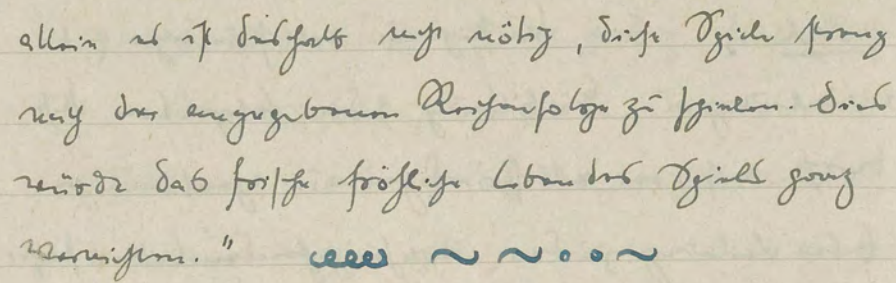 allein es ist deshalb nicht nötig, diese Spiele streng
nach der angegebenen Reihenfolge zu spielen. Dies
würde das frische fröhliche Leben des Spiels ganz
vernichten."